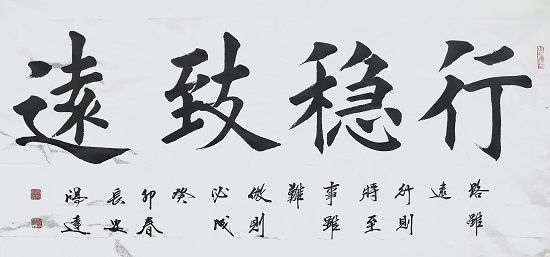 行稳致遠
路雖
遠
行則
將至
事雖
難
做則
必成
癸
卯春
長安